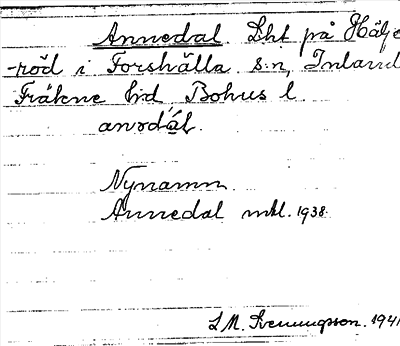 Annedal. Lht på Hälje
-röd i Forshälla s:n, Inland
Fräkne hd Bohus l
anədál.
Nynamn.
Annedal mtl. 1938.
L. M. Svenungsson. 1941